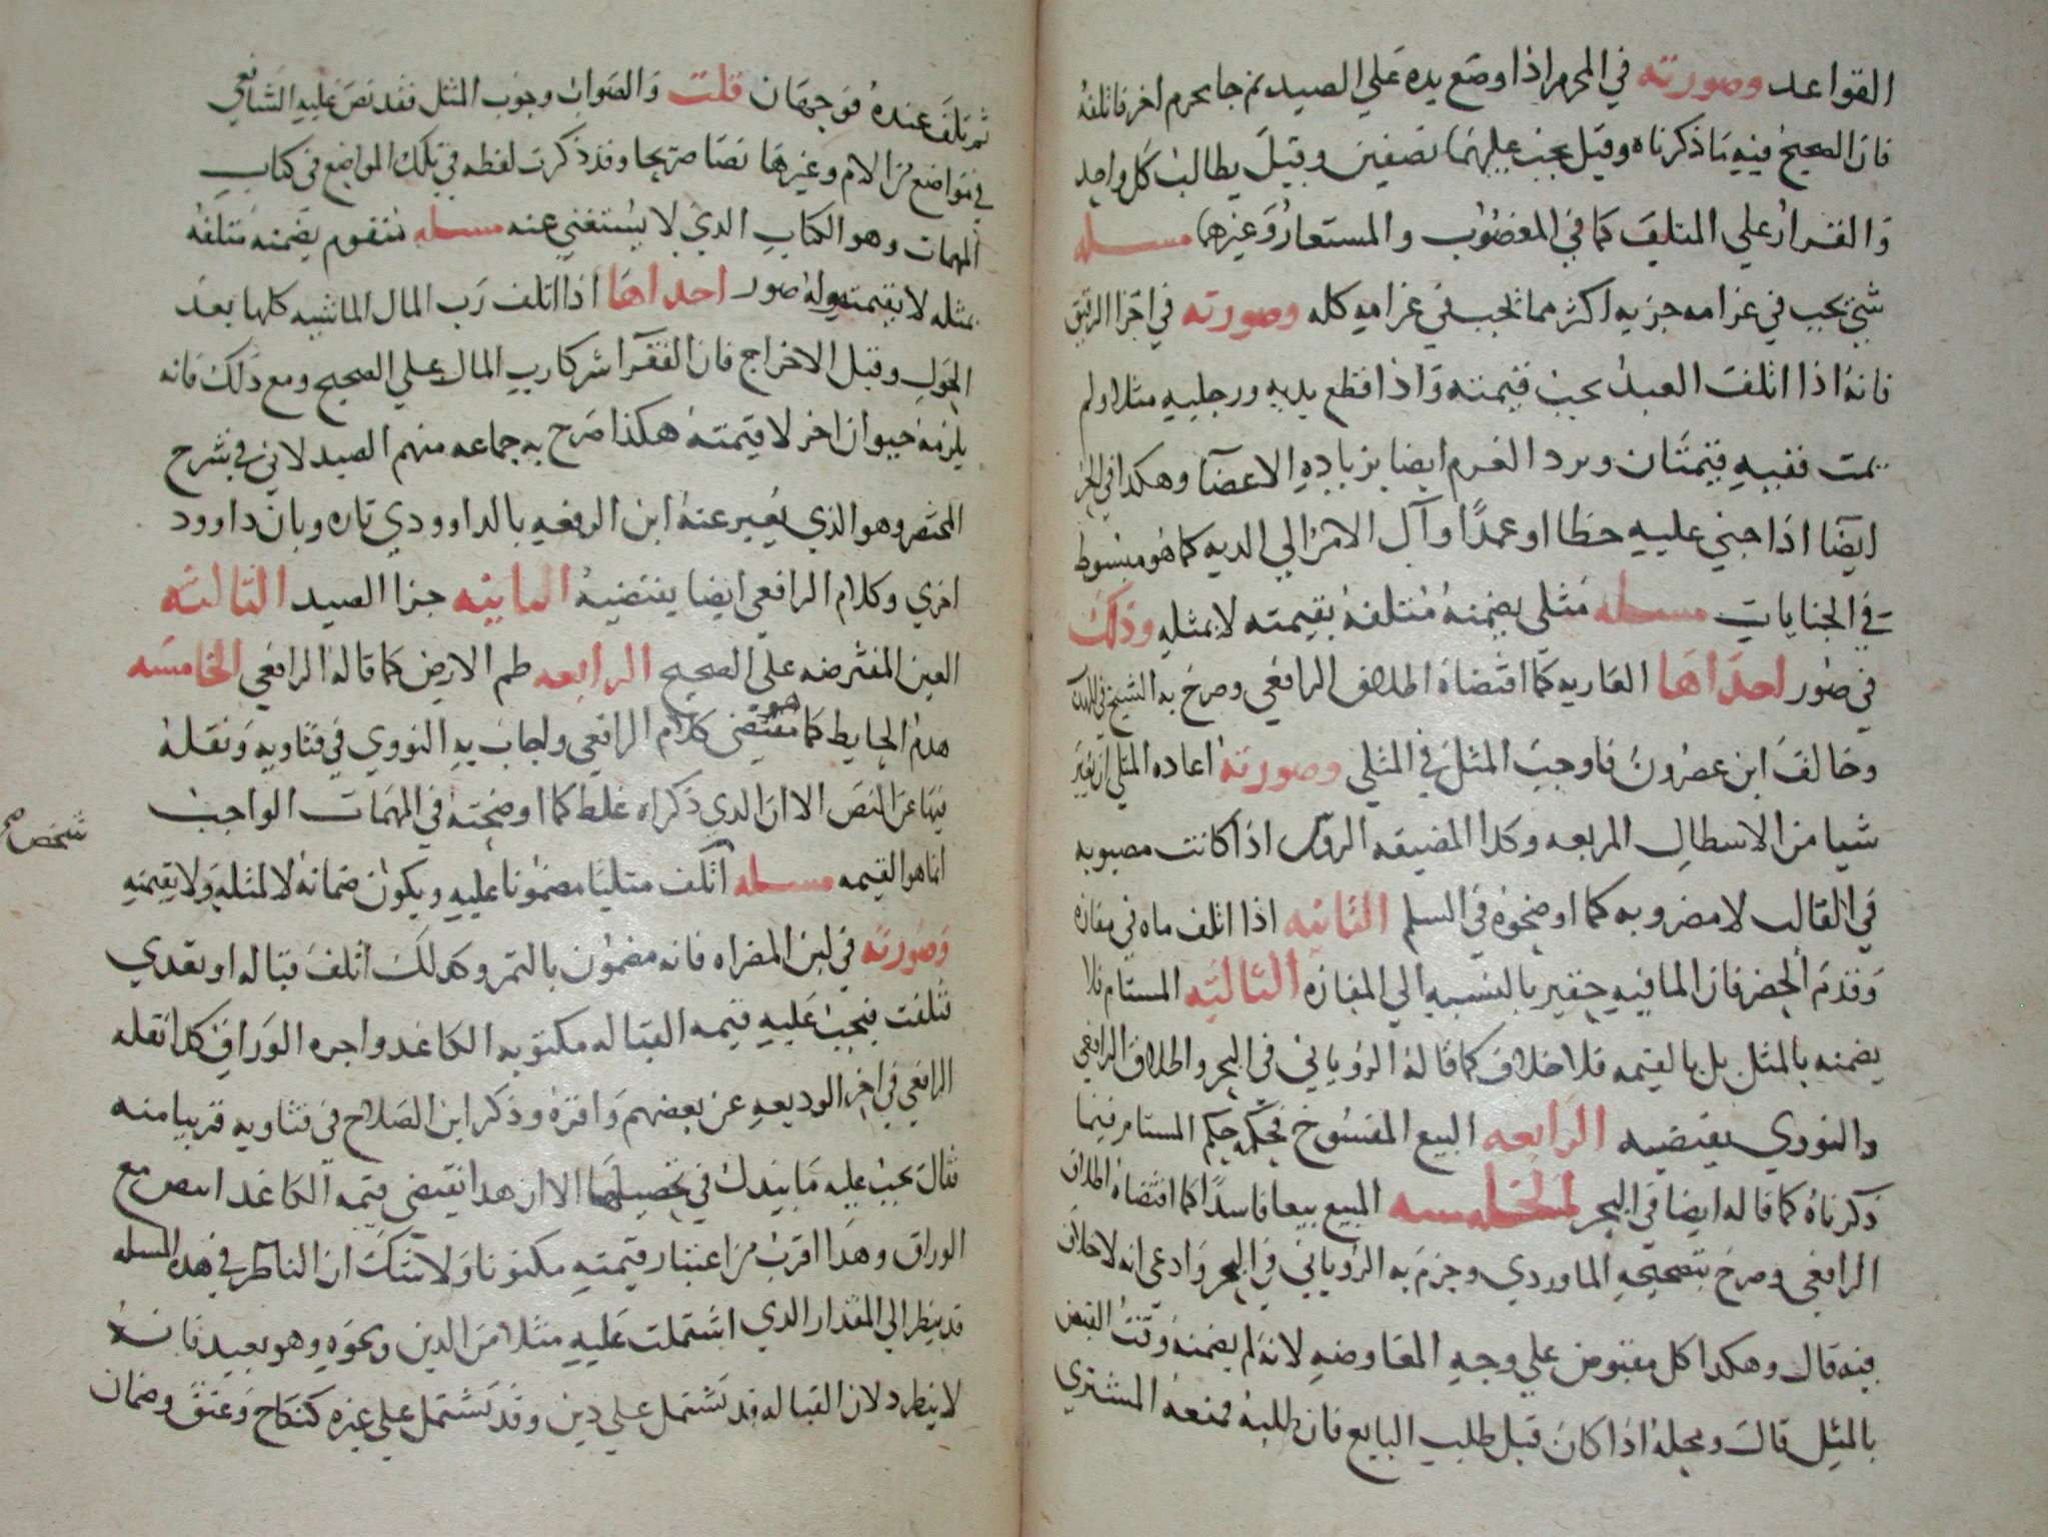 القواعد وصورته في المحرم اذا وضع يده علي الصيد ثم جا محرم اخر فاتلفه
فان الصحيح فيه ما ذكرناه وقيل يجب عليهما نصفين وقيل يطالب كل واحد
والقرار علي المتلف كما في المغضوب والمستعار وغيرهما مسله
شي يجب في غرامه جزيه اكثر مما يجب في غرامه كله وصورته في اجزا الرقيق
فانه اذا اتلف العبد يجب قيمته واذا قطع يديه ورجليه مثلا ولم
يمت ففيه قيمتان ويرد الغرم ايضا بزياده الاعضا وهكذا في الحر
ايضا اذا جني عليه خطا او عمدا وآل الامر الي الديه كما هو مبسوط
في الجنايات مسله مثلي يضمنه متلفه بقيمته لا بمثله وذلك
في صور احداها العاريه كما اقتضاه اطلاق الرافعي وصرح به الشيخ في المهذب
وخالف ابن عصرون فاوجب المثل في المثلي وصورته اعاده المثلي ان يعير
شيا من الاسطال المربعه وكذا المضيقه الروس اذا كانت مصبوبه
في القالب لا مضروبه كما اوضحوه في السلم الثانيه اذا اتلف ماه في مفازه
وقدم الحضر فان الما فيه حقير بالنسبه الي المفازه الثالثه المستام فلا
يضمنه بالمثل بل بالقيمه فلا خلاف كما قاله الروياني في البحر واطلاق الرافعي
والنووي يقتضيه الرابعه البيع المفسوخ فحكمه حكم المستام فيما
ذكرناه كما قاله ايضا في البحر الخامسه المبيع بيعا فاسدا كما اقتضاه اطلاق
الرافعي وصرح بتصحيحه الماوردي وجزم به الروياني في البحر وادعي انه لا خلاف
فيه قال وهكذا كل مقبوض علي وجه المعاوضه لانه لم يضمنه وقت القبض
بالمثل قال ومحله اذا كان قبل طلب البايع فان طلبه فمنعه المشتري
ثم تلف عنده فوجهان قلت والصواب وجوب المثل فقد نص عليه الشافعي
في مواضع من الام وغيرها نصا صريحا وقد ذكرت لفظه في تلك المواضع في كتاب
المهمات وهو الكتاب الذي لا يستغني عنه مسله متقوم يضمنه متلفه
بمثله لا بقيمته وله صور احداها اذا اتلف رب المال الماشيه كلها بعد
الحول وقبل الاخراج فان الفقرا شركا رب المال علي الصحيح ومع ذلك فانه
يلزمه حيوان اخر لا قيمته هكذا صرح به جماعه منهم الصيدلاني في شرح
المختصر وهو الذي يعبر عنه ابن الرفعه بالداوودي تاره وبابن داوود
اخري وكلام الرافعي ايضا يقتضيه الثانيه جزا الصيد الثالثه
العين المقترضه علي الصحيح الرابعه طم الارض كما قاله الرافعي الخامسه
هدم الحايط كما هو مقتضي كلام الرافعي واجاب به النووي في فتاويه ونقله
فيها عن النص الا ان الذي ذكراه غلط كما اوضحته في المهمات الواجب
انما هو القيمه مسله اتلف شخص مثليا مضمونا عليه ويكون ضمانه لا لمثله ولا بقيمته
وصورته في لبن المصراه فانه مضمون بالتمر وكذلك اتلف قباله او تعدي
فتلفت فيجب عليه قيمه القباله مكتوبه الكاغد واجره الوراق كذا نقله
الرافعي في اخر الوديعه عن بعضهم واقره وذكر ابن الصلاح في فتاويه قريبا منه
فقال يجب عليه ما يبذل في تحصيلها الا ان هذا يقتضي قيمه الكاغد ابيض مع
الوراق وهذا اقرب من اعتبار قيمته مكتوبا ولا شك ان الناظر في هذه المسله
قد ينظر الي المقدار الذي اشتملت عليه مثلا من الدين ونحوه وهو بعيد فانه
لا يطرد لان القباله قد تشتمل علي دين وقد تشتمل علي غيره كنكاح وعتق وضمان